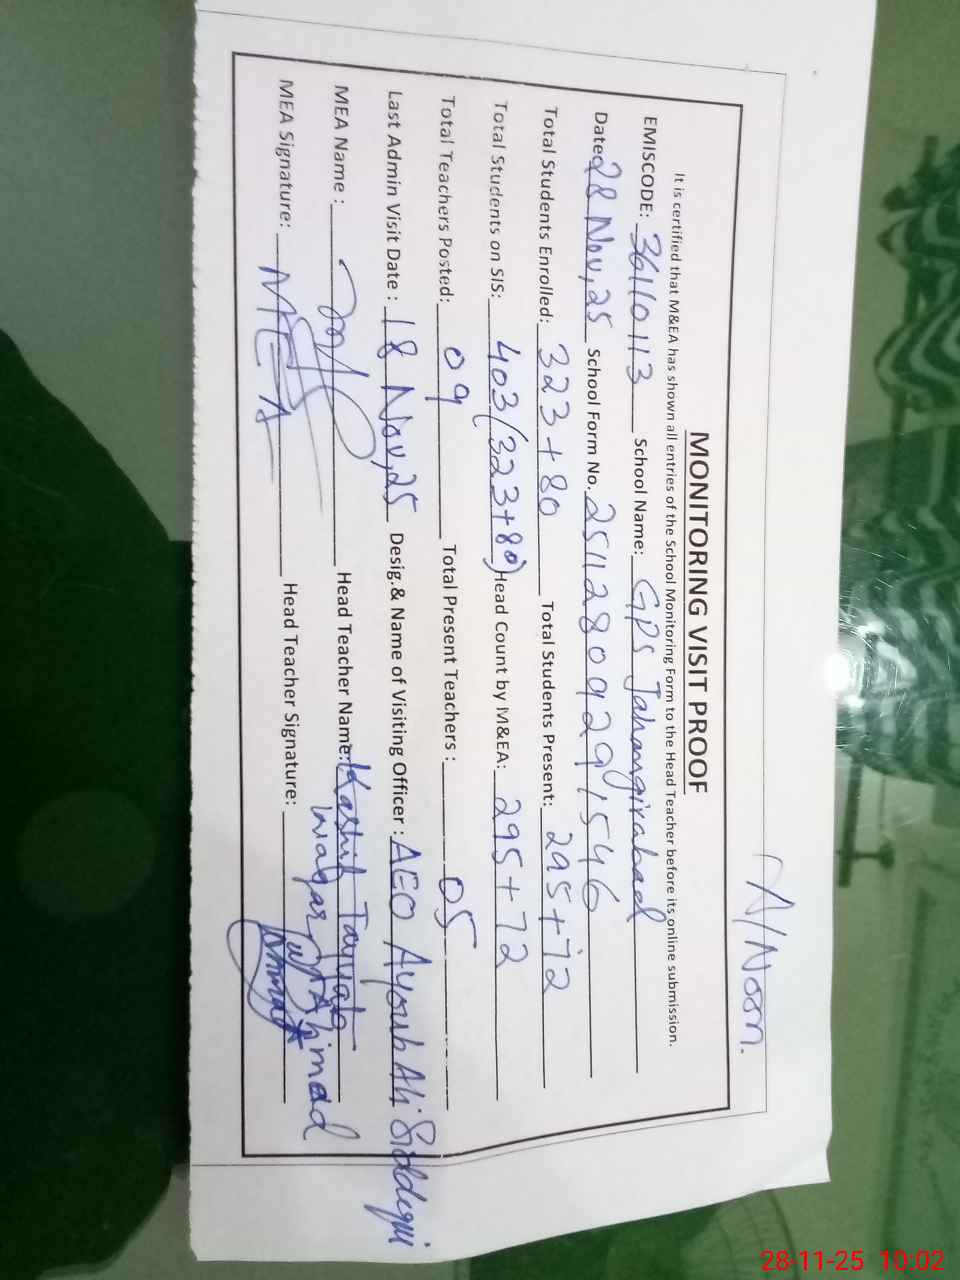 A/Noon.
MONITORING VISIT PROOF
It is certified that M&EA has shown all entries of the School Monitoring Form to the Head Teacher before its online submission.
EMISCODE: 36110113 School Name: GPS Jahangirabad
Dated 28 Nov,25 School Form No. 251128092991546
Total Students Enrolled: 323+80 Total Students Present: 295+72
Total Students on SIS: 403(323+80) Head Count by M&EA: 295+72
Total Teachers Posted: 09 Total Present Teachers : 05
Last Admin Visit Date : 18 Nov,25 Desig.& Name of Visiting Officer : AEO Ayoub Ali Siddequi
MEA Name : Head Teacher Name: Kashif Tayyab
Waqar Ahmad
MEA Signature: MEA Head Teacher Signature:
28-11-25 10:02